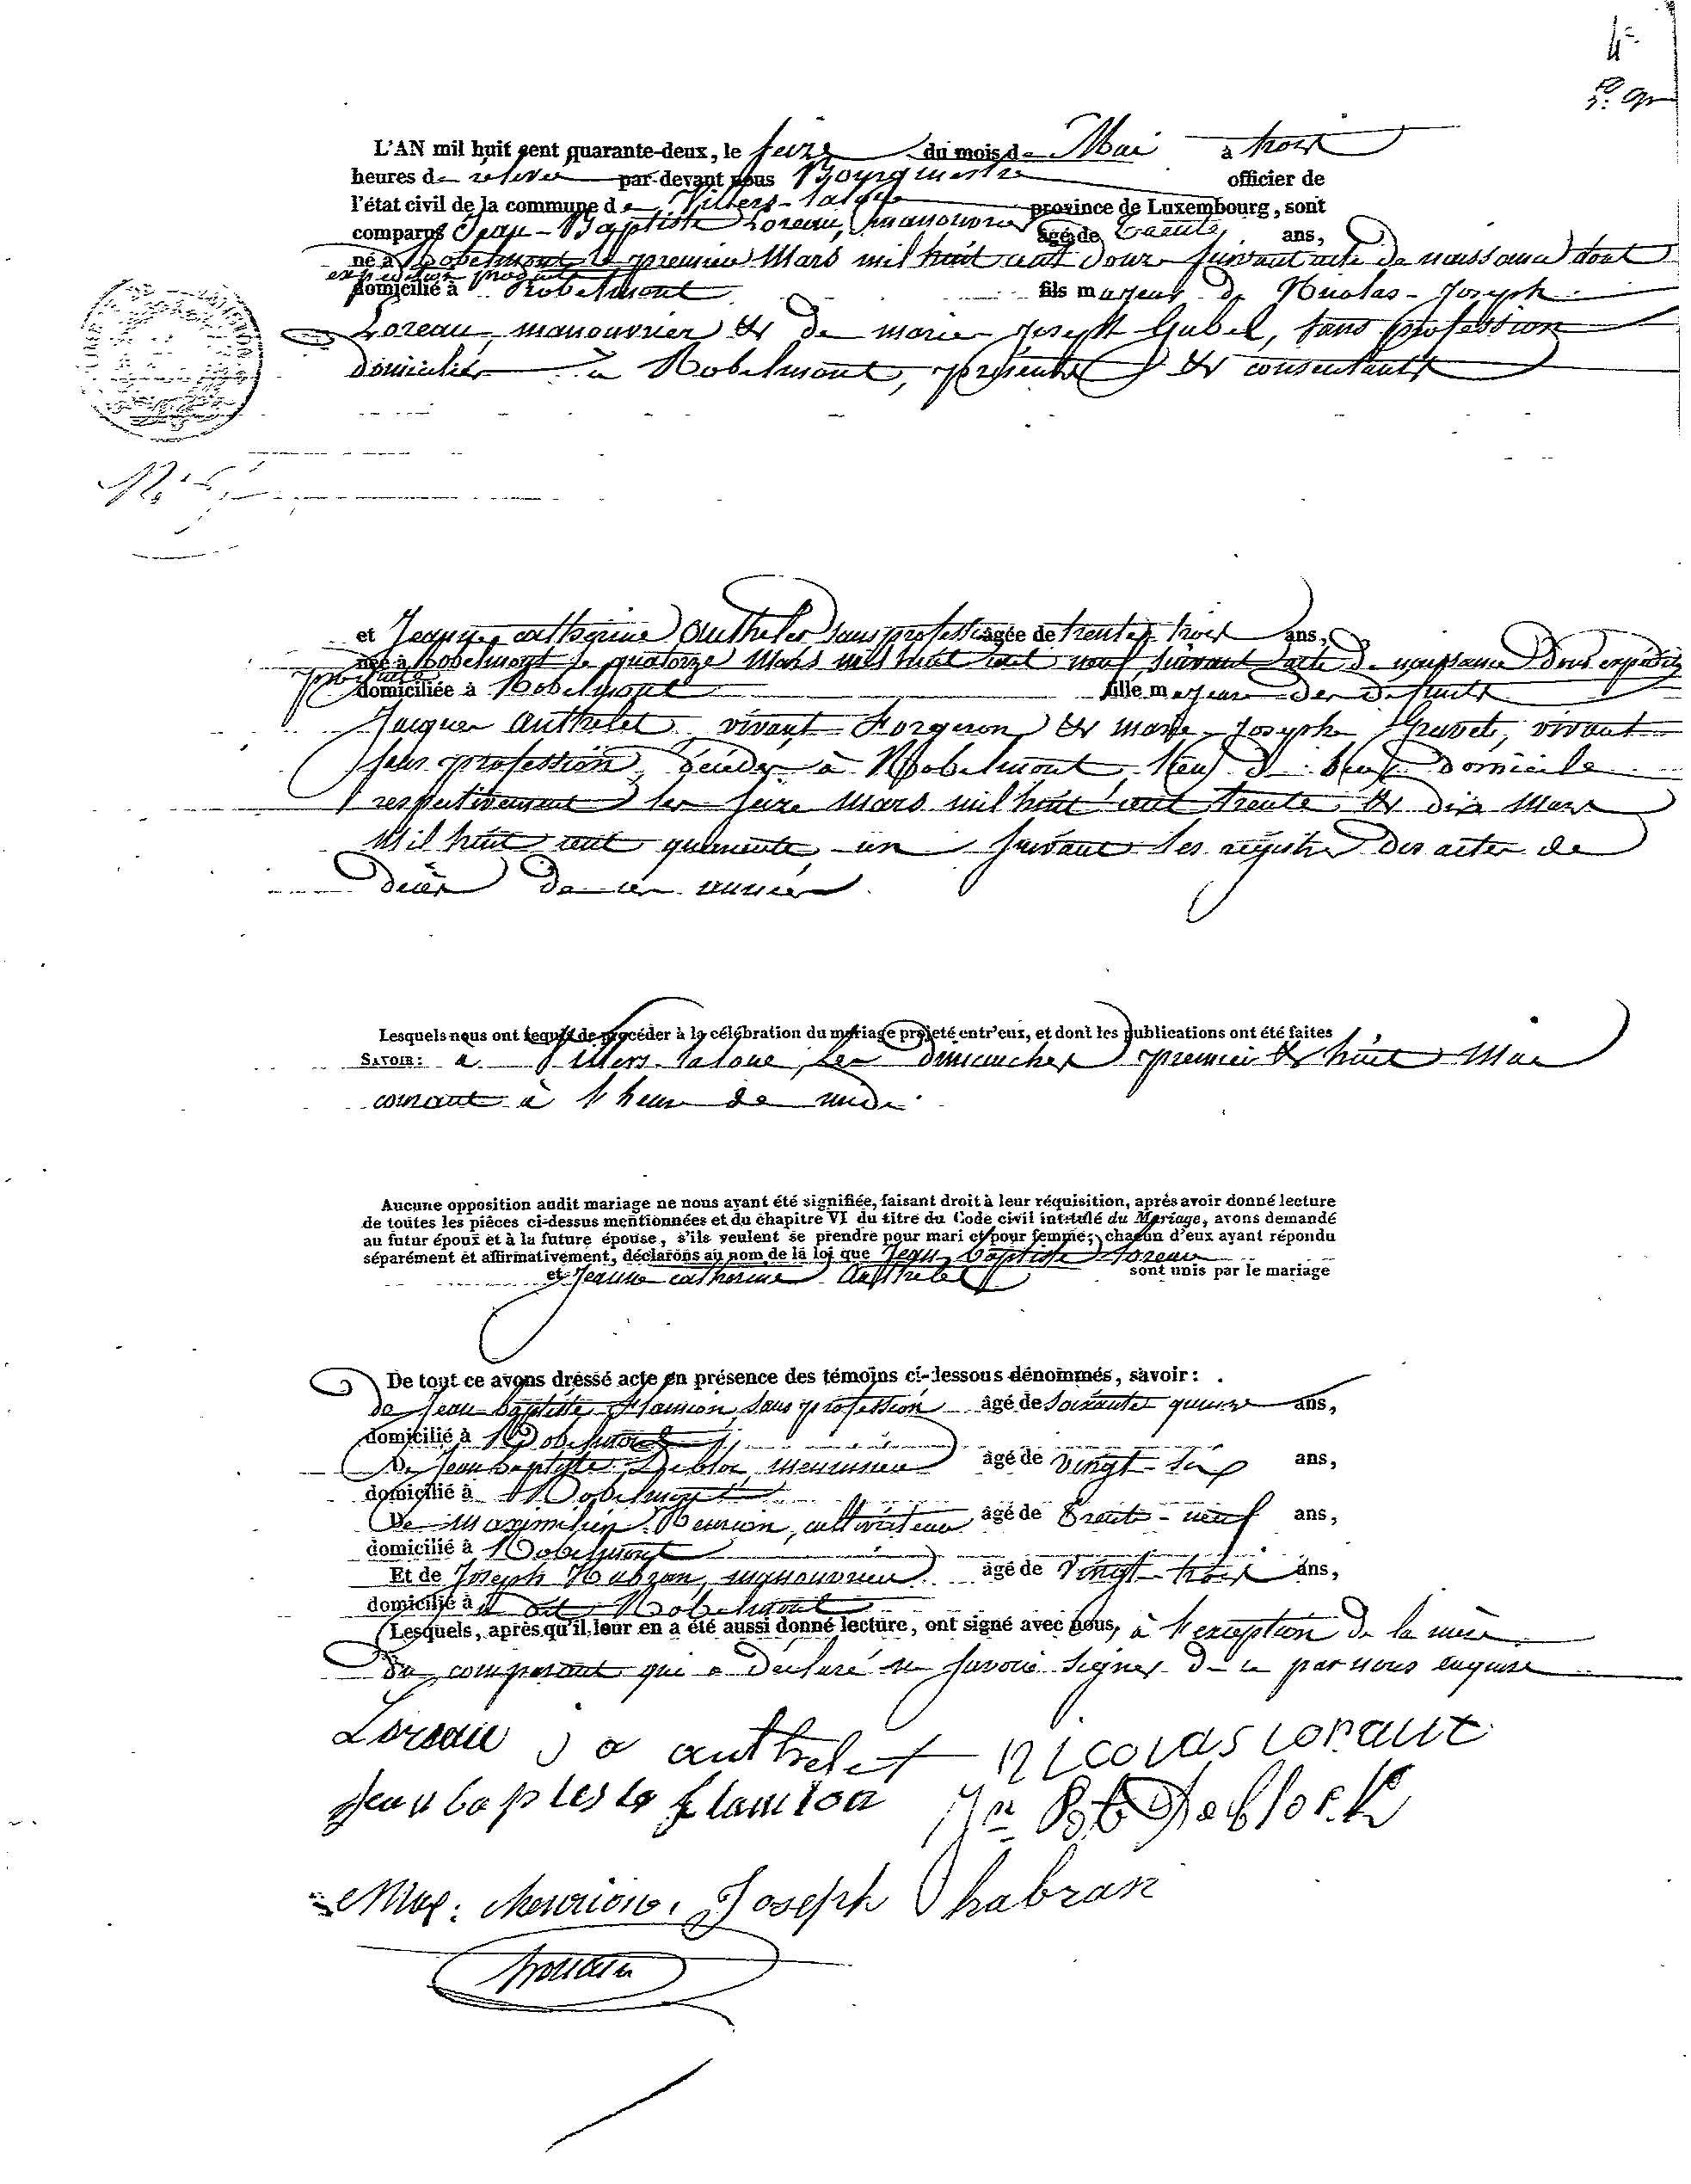 4e
L'AN mil huit cent quarante-deux, le seize du mois de Mai à trois
heures de relevée par devant nous Bourgmestre officier de
l'état civil de la commune de Villers-laloue province de Luxembourg, sont
comparus Jean-Baptiste Loreau, manouvrier âgé de trente ans,
né à Robelmont le premier Mars mil huit cent douze suivant acte de naissance dont
expédition produite
domicilié à Robelmont fils majeur de Nicolas-Joseph
Loreau, manouvrier & de marie Joseph Gubel, sans profession
domiciliés à Robelmont, présents & consentants
N° 5
et Jeanne catherine Authelet sans profession âgée de trente trois ans,
née à Robelmont le quatorze Mars mil huit cent neuf suivant acte de naissance dont expédition
produite
domiciliée à Robelmont fille majeure des defunts
Jacques Authelet vivant Forgeron & marie-Josephe Gravet, vivant
sans profession, décédés à Robelmont, lieu de leur domicile
respectivement les seize Mars mil huit cent trente & dix Mars
Mil huit cent quarante un suivant les régistres des actes de
décès de ces années.
Lesquels nous ont requis de procéder à la célébration du mariage projeté entr'eux, et dont les publications ont été faites
SAVOIR: à Villers-laloue, les dimanches premier & huit Mai
courant à l'heure de midi.
Aucune opposition audit mariage ne nous ayant été signifiée, faisant droit à leur réquisition, après avoir donné lecture
de toutes les pièces ci-dessus mentionnées et du chapitre VI du titre du Code civil intitulé du Mariage, avons demandé
au futur époux et à la future épouse, s'ils veulent se prendre pour mari et pour femme; chacun d'eux ayant répondu
séparément et affirmativement, déclarons au nom de la loi que Jean baptiste Loreau
et Jeanne catherine Authelet sont unis par le mariage
De tout ce avons dressé acte en présence des témoins ci-dessous dénommés, savoir:
de Jean baptiste Flamion, sans profession âgé de soixante quinze ans,
domicilié à Robelmont
De Jean baptiste Debloc, menuisier âgé de vingt-six ans,
domicilié à Robelmont
De maximilien Henrion, cultivateur âgé de Trente-neuf ans,
domicilié à Robelmont
Et de Joseph Habran, manouvrier âgé de vingt-trois ans,
domicilié à dit Robelmont
Lesquels, après qu'il leur en a été aussi donné lecture, ont signé avec nous, à l'exception de la mère
du comparant qui a declaré ne savoir signer de ce par nous enquise
Loreau j a authelet nicolas loraux
Jean baptiste flamion Jn Bte Deblock
Max: henrion. Joseph habran